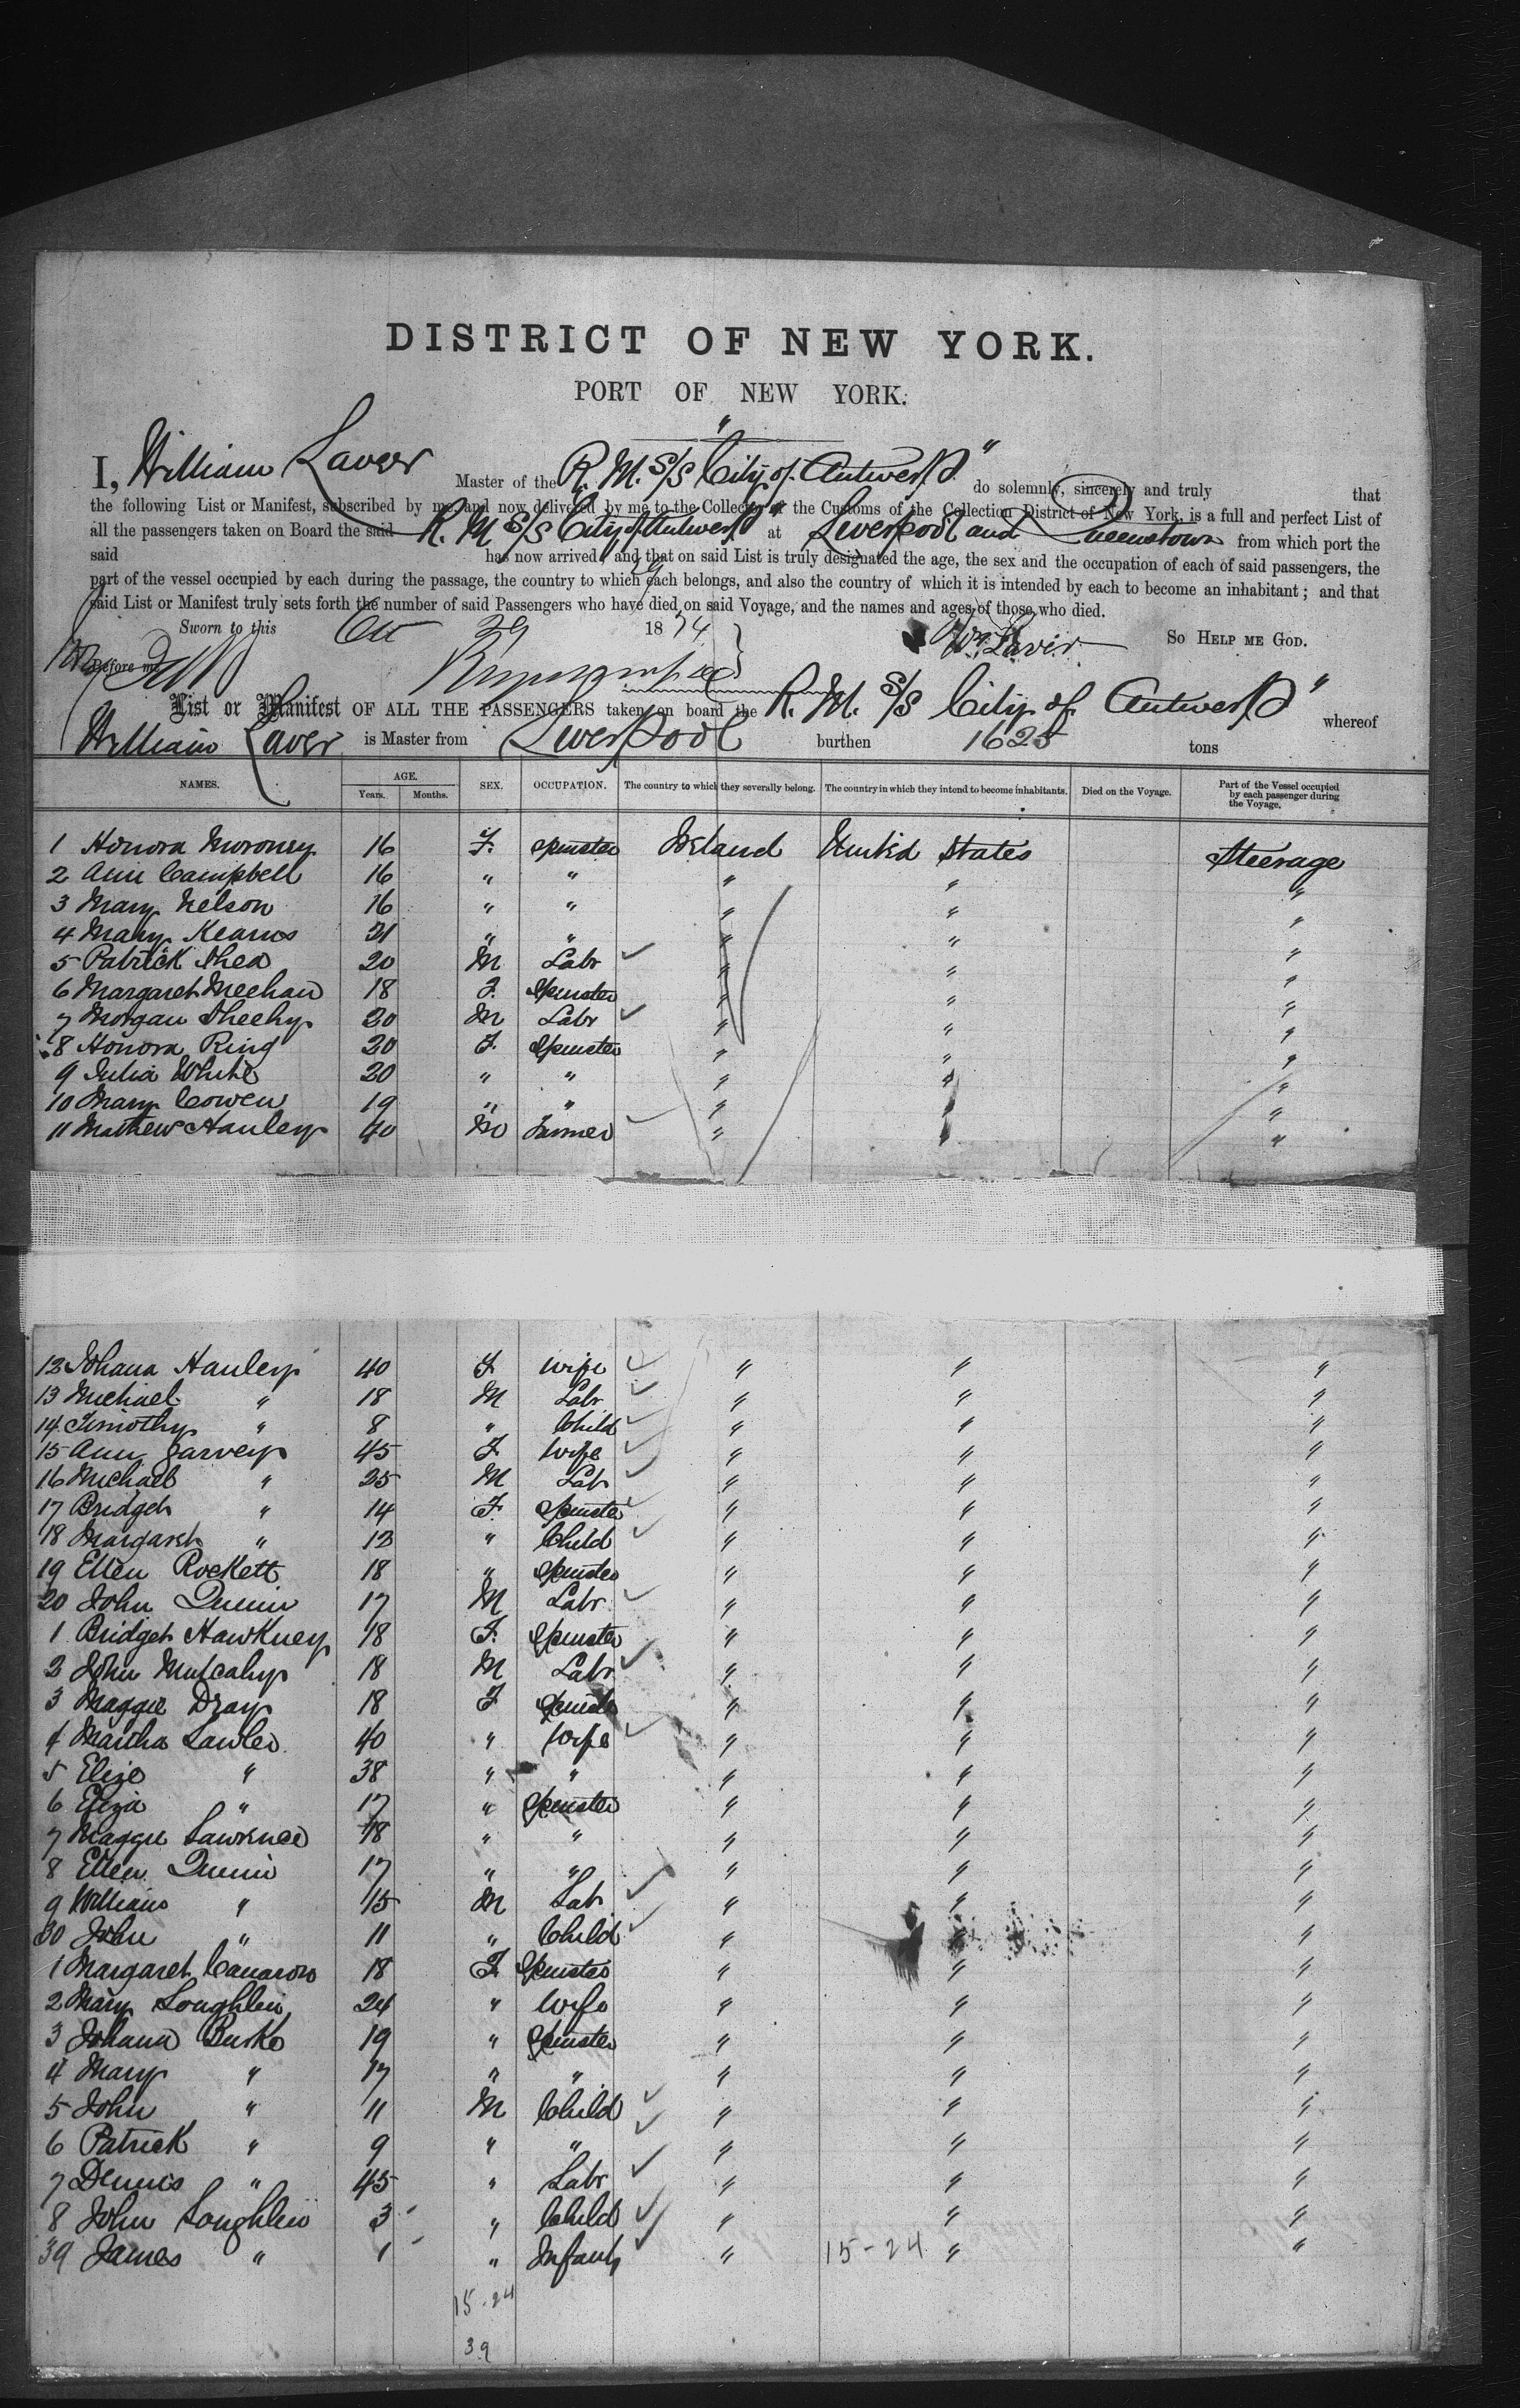 DISTRICT OF NEW YORK.
PORT OF NEW YORK.
I, William Laver Master of the R. M. S/S "City of Antwerp" do solemnly, sincerely and truly that
the following List or Manifest, subscribed by me, and now delivered by me to the Collector of the Customs of the Collection District of New York, is a full and perfect List of
all the passengers taken on Board the said R. M S/S City of Antwerp at Liverpool and Queenstown from which port the
said has now arrived; and that on said List is truly designated the age, the sex and the occupation of each of said passengers, the
part of the vessel occupied by each during the passage, the country to which each belongs, and also the country of which it is intended by each to become an inhabitant; and that
said List or Manifest truly sets forth the number of said Passengers who have died on said Voyage, and the names and ages of those who died.
Sworn to this Oct 29 1874 Wm Laver So HELP ME GOD.
Before me
List or Manifest OF ALL THE PASSENGERS taken on board the R. M. S/S City of Antwerp" whereof
William Laver is Master from Liverpool burthen 1625 tons
NAMES. AGE. Years. Months. SEX. OCCUPATION. The country to which they severally belong. The country in which they intend to become inhabitants. Died on the Voyage. Part of the Vessel occupied by each passenger during the Voyage.
1 Honora Moroney 16 F. Spinster Ireland United States Steerage
2 Ann Campbell 16 " " " " "
3 Mary Nelson 16 " " " " "
4 Mary Kearns 21 " " " " "
5 Patrick Shea 20 M Labr " " "
6 Margaret Meehan 18 F. Spinster " " "
7 Morgan Sheehy 20 M Labr " " "
8 Honora Ring 20 F. Spinster " " "
9 Julia White 20 " " " " "
10 Mary Cowen 19 " " " " "
11 Mathew Hanley 40 M Farmer " " "
12 Johana Hanley 40 F wife " " "
13 Michael " 18 M Labr " " "
14 Timothy " 8 " Child " " "
15 Ann Garvey 45 F Wife " " "
16 Michael " 25 M Labr " " "
17 Bridget " 14 F. Spinster " " "
18 Margaret " 12 " Child " " "
19 Ellen Rockett 18 " Spinster " " "
20 John Quinn 17 M Labr " " "
1 Bridget Hawkney 18 F. Spinster " " "
2 John Mulcahy 18 M Labr " " "
3 Maggie Dray 18 F Spinster " " "
4 Martha Lawler 40 " Wife " " "
5 Elize " 38 " " " " "
6 Eliza " 17 " Spinster " " "
7 Maggie Lawrence 18 " " " " "
8 Ellen Quinn 17 " " " " "
9 William " 15 M Labr " " "
30 John " 11 " Child " " "
1 Margaret Canavan 18 F. Spinster " " "
2 Mary Loughlin 24 " Wife " " "
3 Johana Burke 19 " Spinster " " "
4 Mary " 17 " " " " "
5 John " 11 M Child " " "
6 Patrick " 9 " " " " "
7 Dennis " 45 " Labr " " "
8 John Loughlin 3 " Child " " "
39 James " 1 " Infant " 15-24 " "
15-24
39